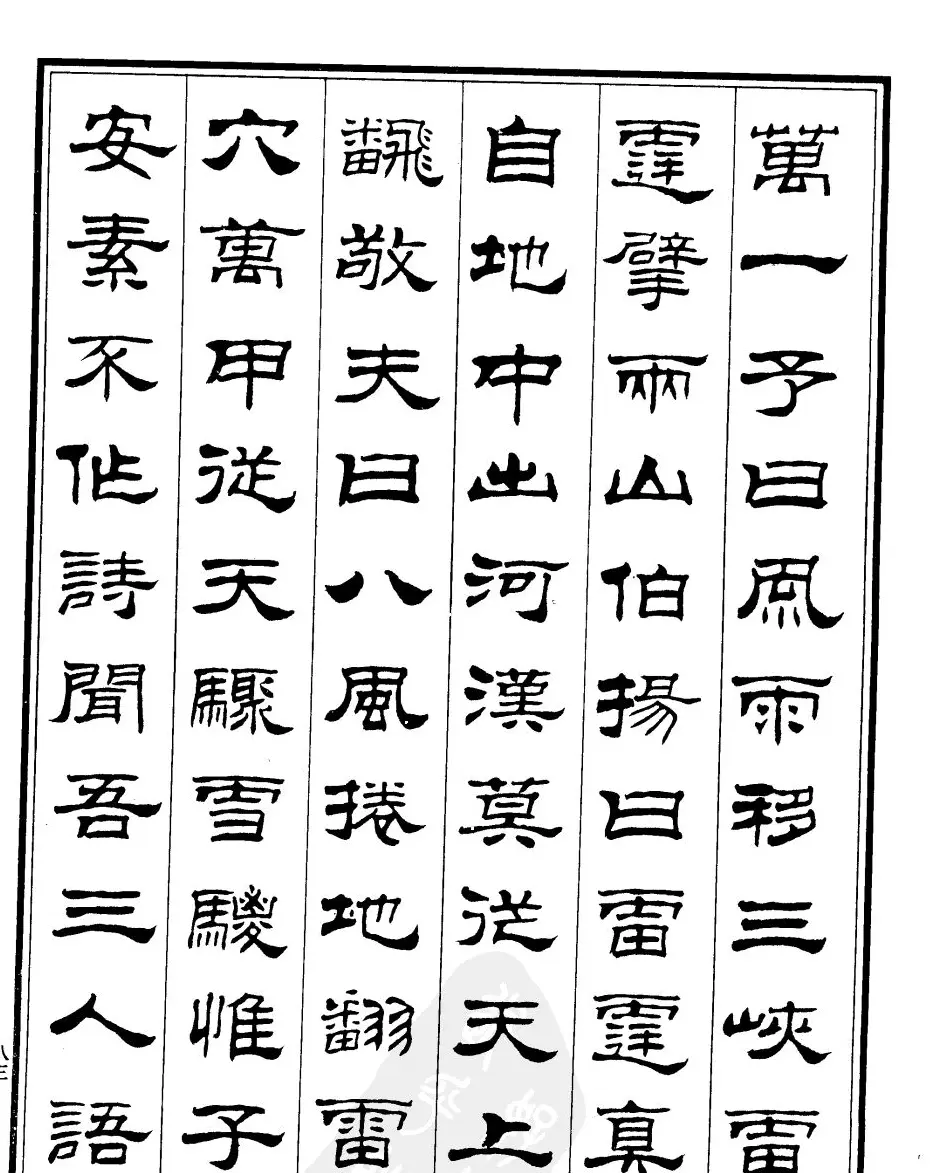 萬一予曰風雨移三峽雷
霆擘兩山伯揚曰雷霆真
自地中出河漢莫從天上
飜敬夫曰八風捲地翻雷
穴萬甲從天驟雪騣惟子
安素不作詩聞吾三人語
八三